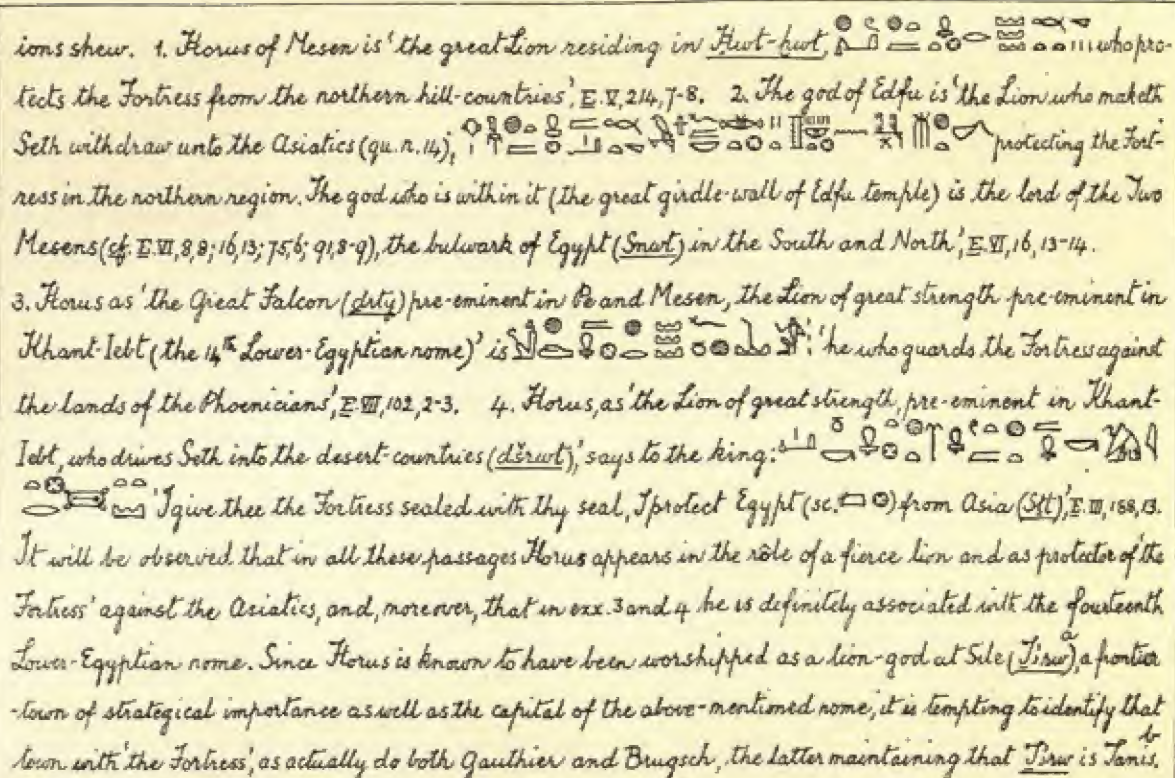 ions shew. 1. Horus of Mesen is 'the great Lion residing in Ḥwt-ḥwt, who pro-
tects the Fortress from the northern hill-countries', E.V, 214, 7-8. 2. The god of Edfu is 'the Lion who maketh
Seth withdraw unto the Asiatics (qu. n. 14), protecting the Fort-
ress in the northern region. The god who is within it (the great girdle-wall of Edfu temple) is the lord of the Two
Mesens (cf. E.VI, 8, 8; 16, 13; 75, 6; 91, 8-9), the bulwark of Egypt (Snwt) in the South and North', E.VI, 16, 13-14.
3. Horus as 'the Great Falcon (drty) pre-eminent in Pe and Mesen, the Lion of great strength pre-eminent in
Khant-Iebt (the 14th Lower-Egyptian nome)' is 'he who guards the Fortress against
the lands of the Phoenicians', E.VII, 102, 2-3. 4. Horus, as 'the Lion of great strength, pre-eminent in Khant-
Iebt, who drives Seth into the desert-countries (dšrwt),' says to the king:
'I give thee the Fortress sealed with thy seal, I protect Egypt (sc. ) from Asia (Stt)', E. 188, 13.
It will be observed that in all these passages Horus appears in the rôle of a fierce lion and as protector of 'the
Fortress' against the Asiatics, and, moreover, that in exx. 3 and 4 he is definitely associated with the fourteenth
Lower-Egyptian nome. Since Horus is known to have been worshipped as a lion-god at Sile (Ṯꜣrw),a a frontier
-town of strategical importance as well as the capital of the above-mentioned nome, it is tempting to identify that
town with 'the Fortress', as actually do both Gauthier and Brugsch, the latter maintaining that Ṯꜣrw is Tanis.b